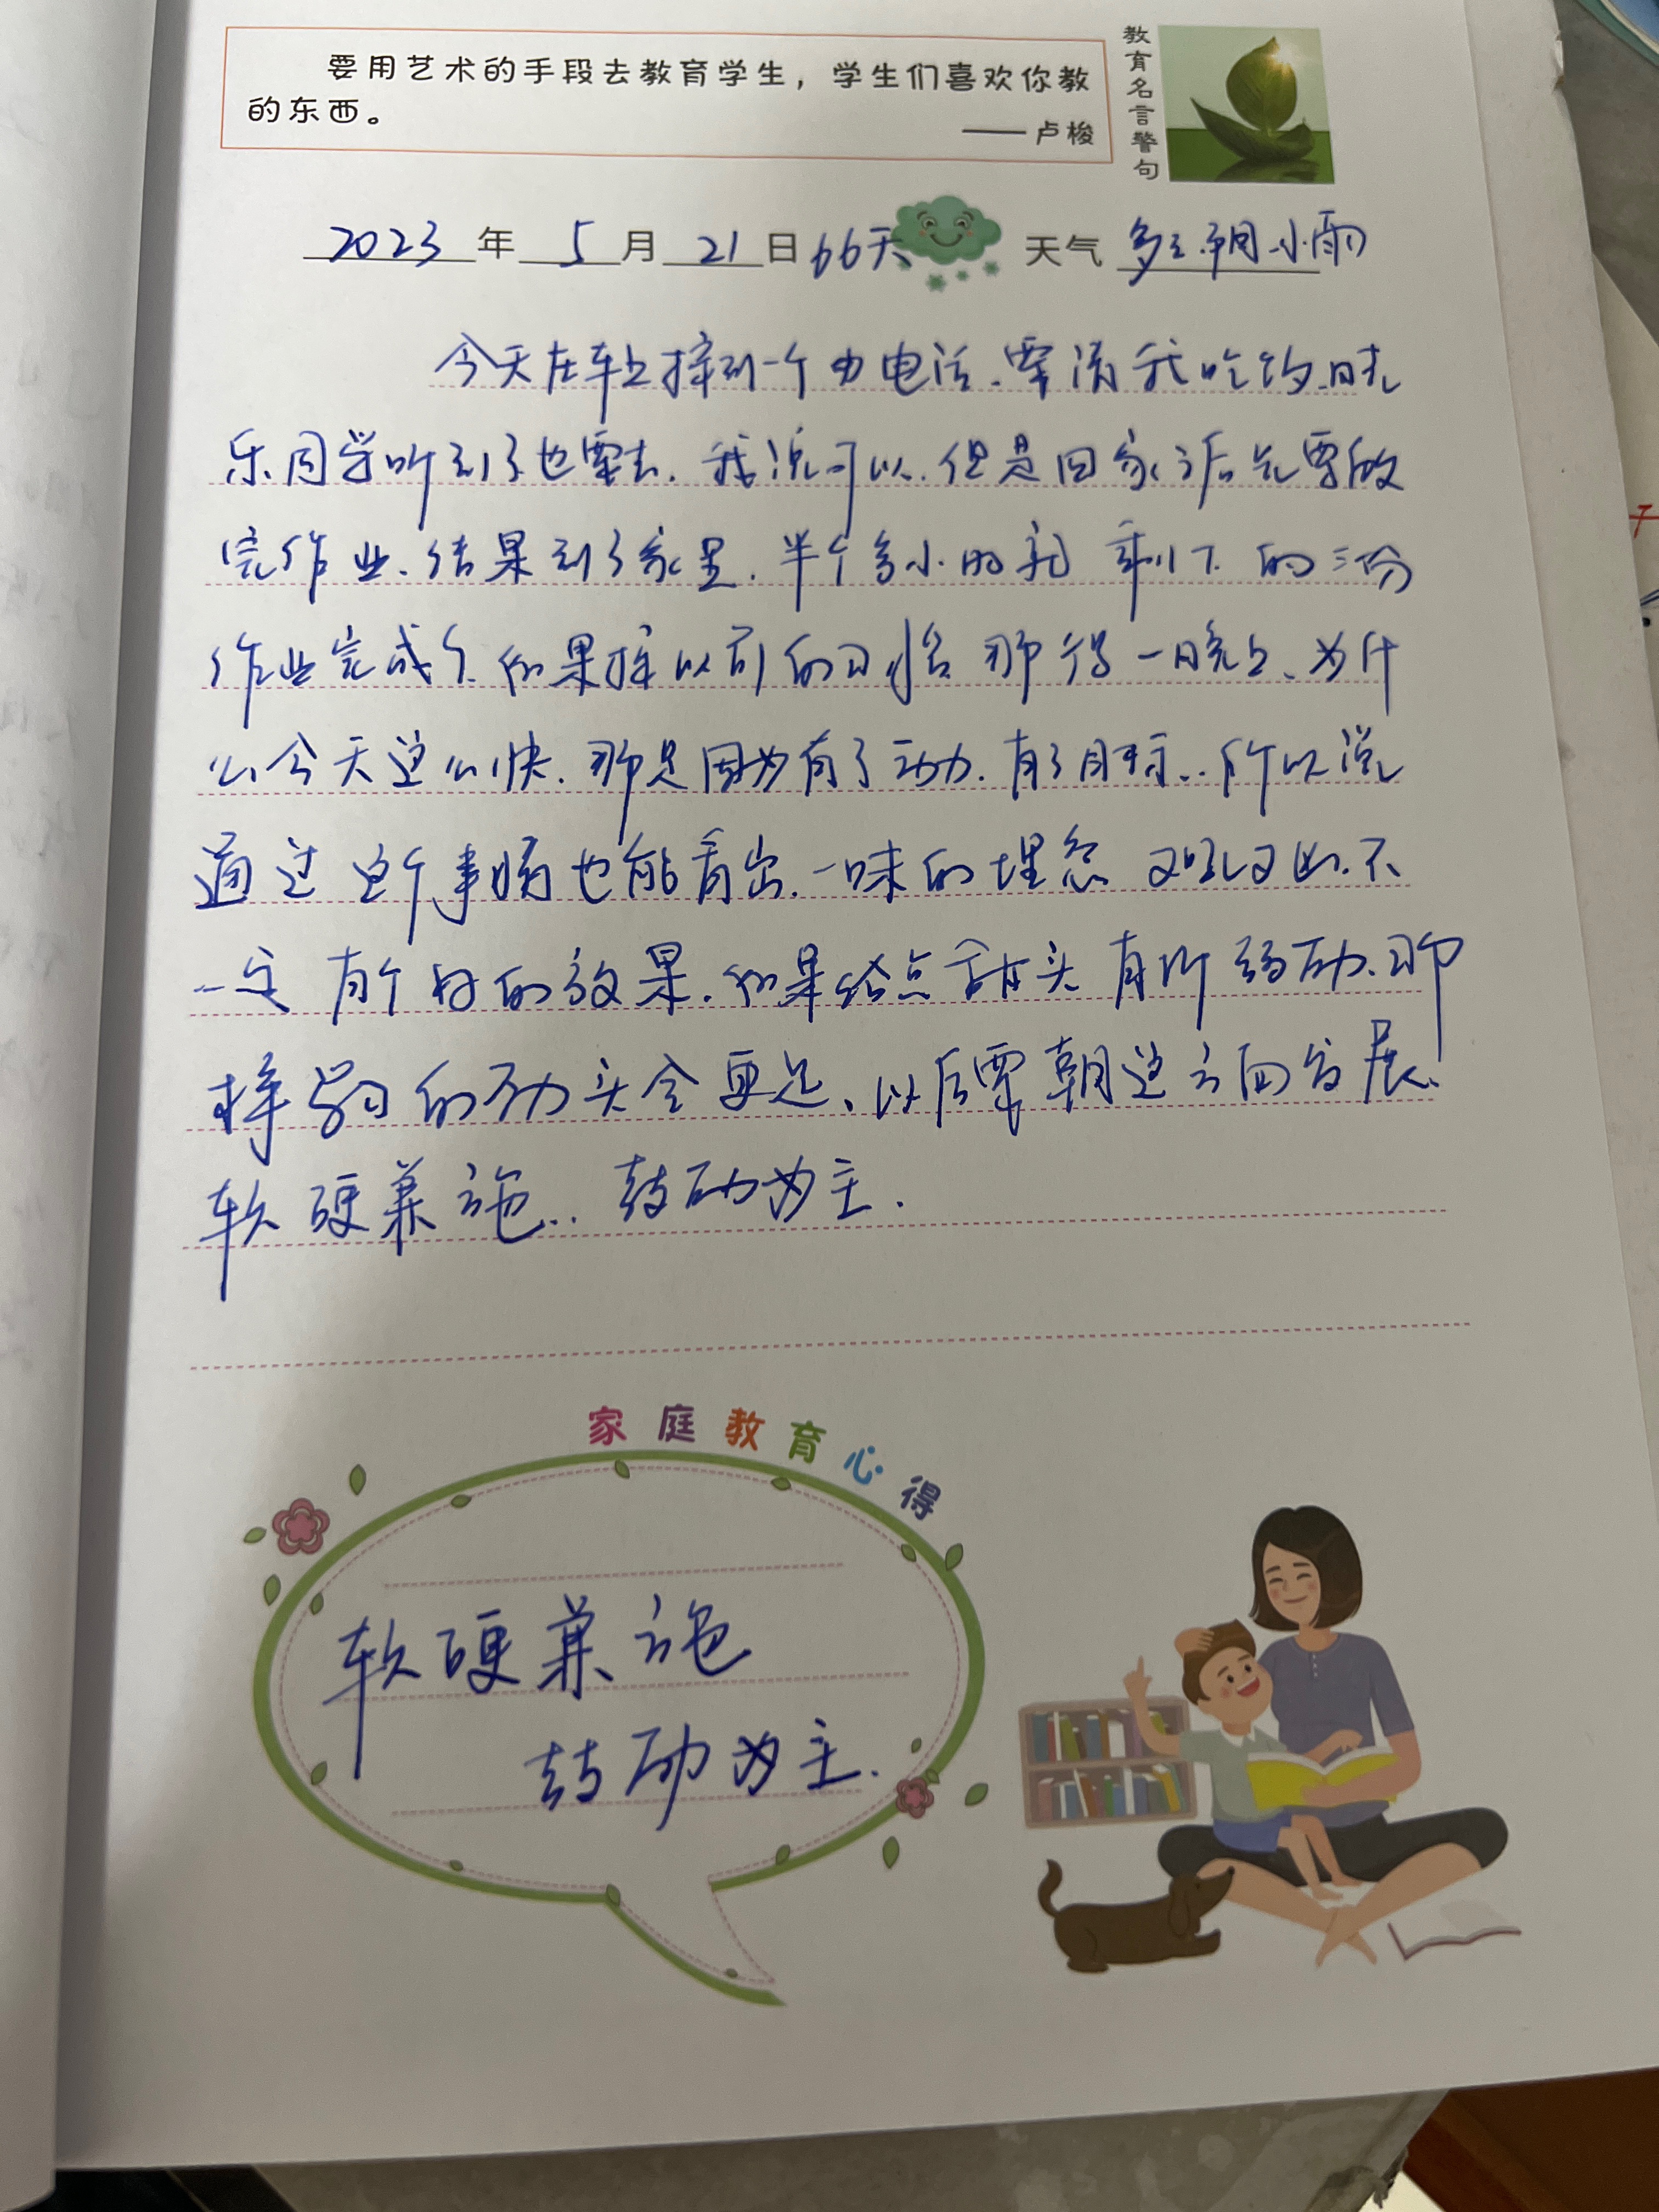 要用艺术的手段去教育学生，学生们喜欢你教
的东西。
——卢梭
教育名言警句
2023年5月21日66天 天气 多云.阴.小雨
今天在车上接到一个 电话.要请我吃饭.
乐同学听到了也要去.我说可以.但是回家之后先要做
完作业.结果到了家里.半个多小时就 剩下 的三份
作业完成了.如果按以前的习惯 那得一晚上、为什
么今天这么快.那是因为有了动力.有了目标..所以说
通过这个事情也能看出.一味的埋怨 又 又 .不
一定有个好的效果.如果给点甜头有所鼓励.那
将学习的动力头会更足、以后要朝这方面发展.
软硬兼施..鼓励为主.
家庭教育心得
软硬兼施
鼓励为主.